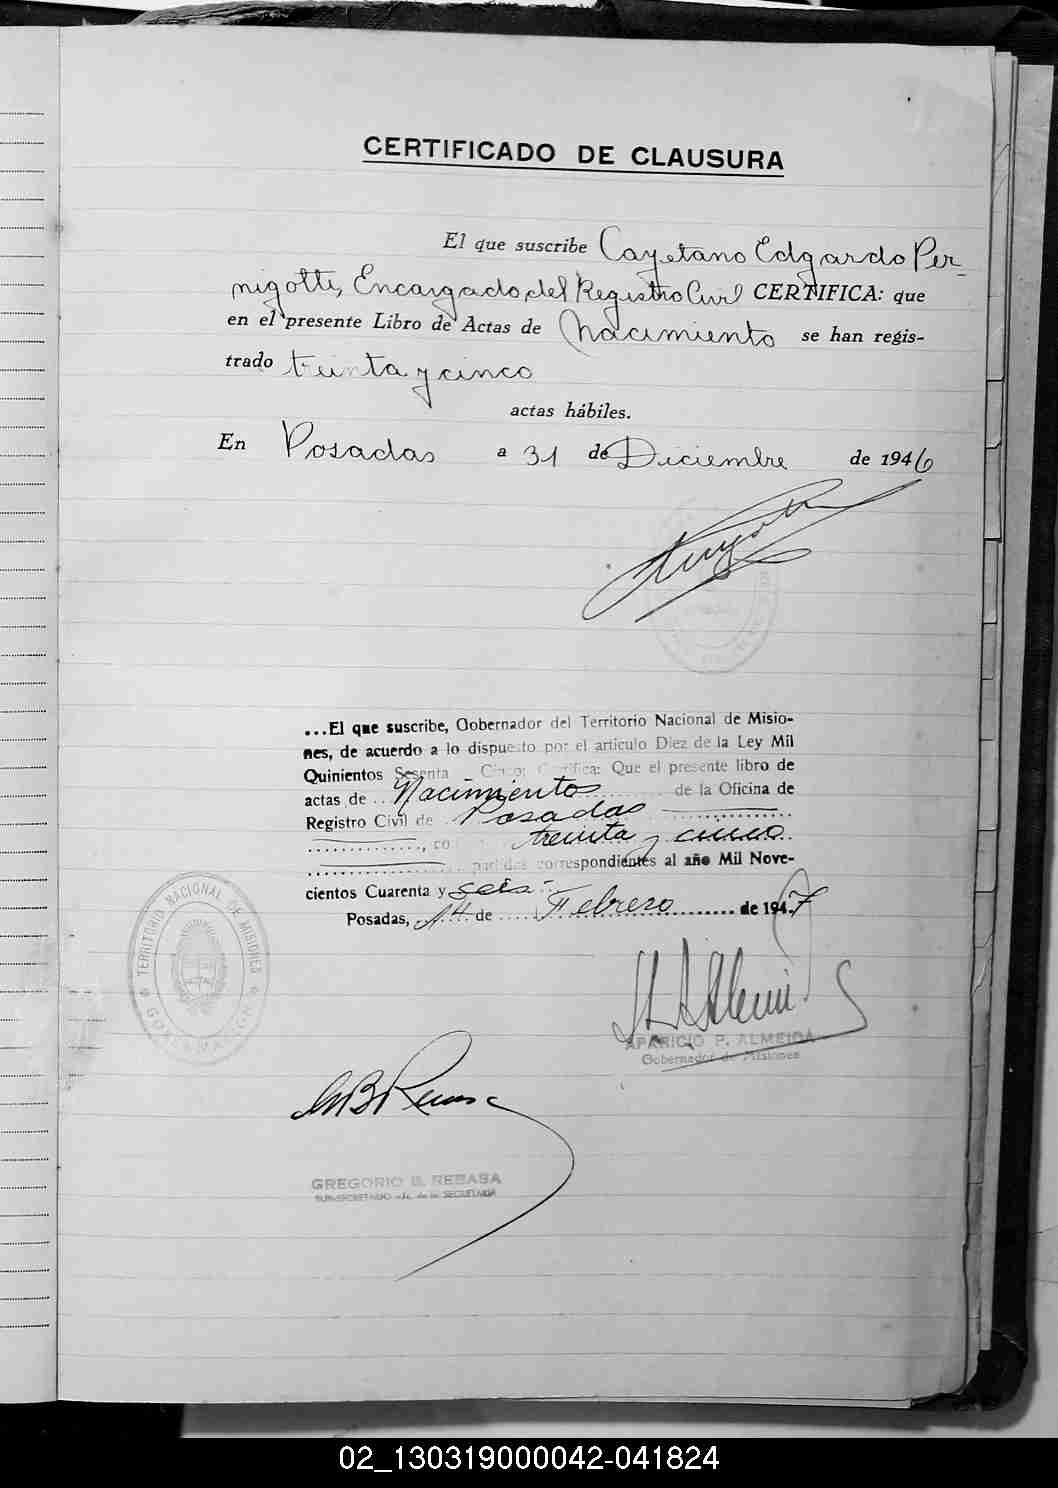 CERTIFICADO DE CLAUSURA
El que suscribe Cayetano Edgardo Per-
nigotti, Encargado del Registro Civil CERTIFICA: que
en el presente Libro de Actas de Nacimiento se han regis-
trado treinta y cinco
actas hábiles.
En Posadas a 31 de Diciembre de 1946
...El que suscribe, Gobernador del Territorio Nacional de Misio-
nes, de acuerdo a lo dispuesto por el artículo Diez de la Ley Mil
Quinientos Sesenta y Cinco: Certifica: Que el presente libro de
actas de Nacimientos de la Oficina de
Registro Civil de Posadas
treinta y cinco
partidas correspondientes al año Mil Nove-
cientos Cuarenta y seis.-
Posadas, 14 de Febrero de 1947
TERRITORIO NACIONAL DE MISIONES
GOBERNACION
APARICIO P. ALMEIDA
Gobernador de Misiones
GREGORIO B. REBASA
SUB-SECRETARIO a/c. de la SECRETARIA
02_130319000042-041824